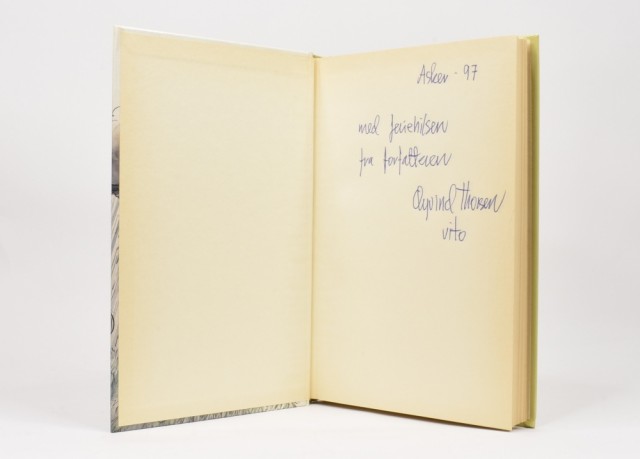 Asker - 97
med feriehilsen
fra forfatteren
Øyvind Thorsen
vito